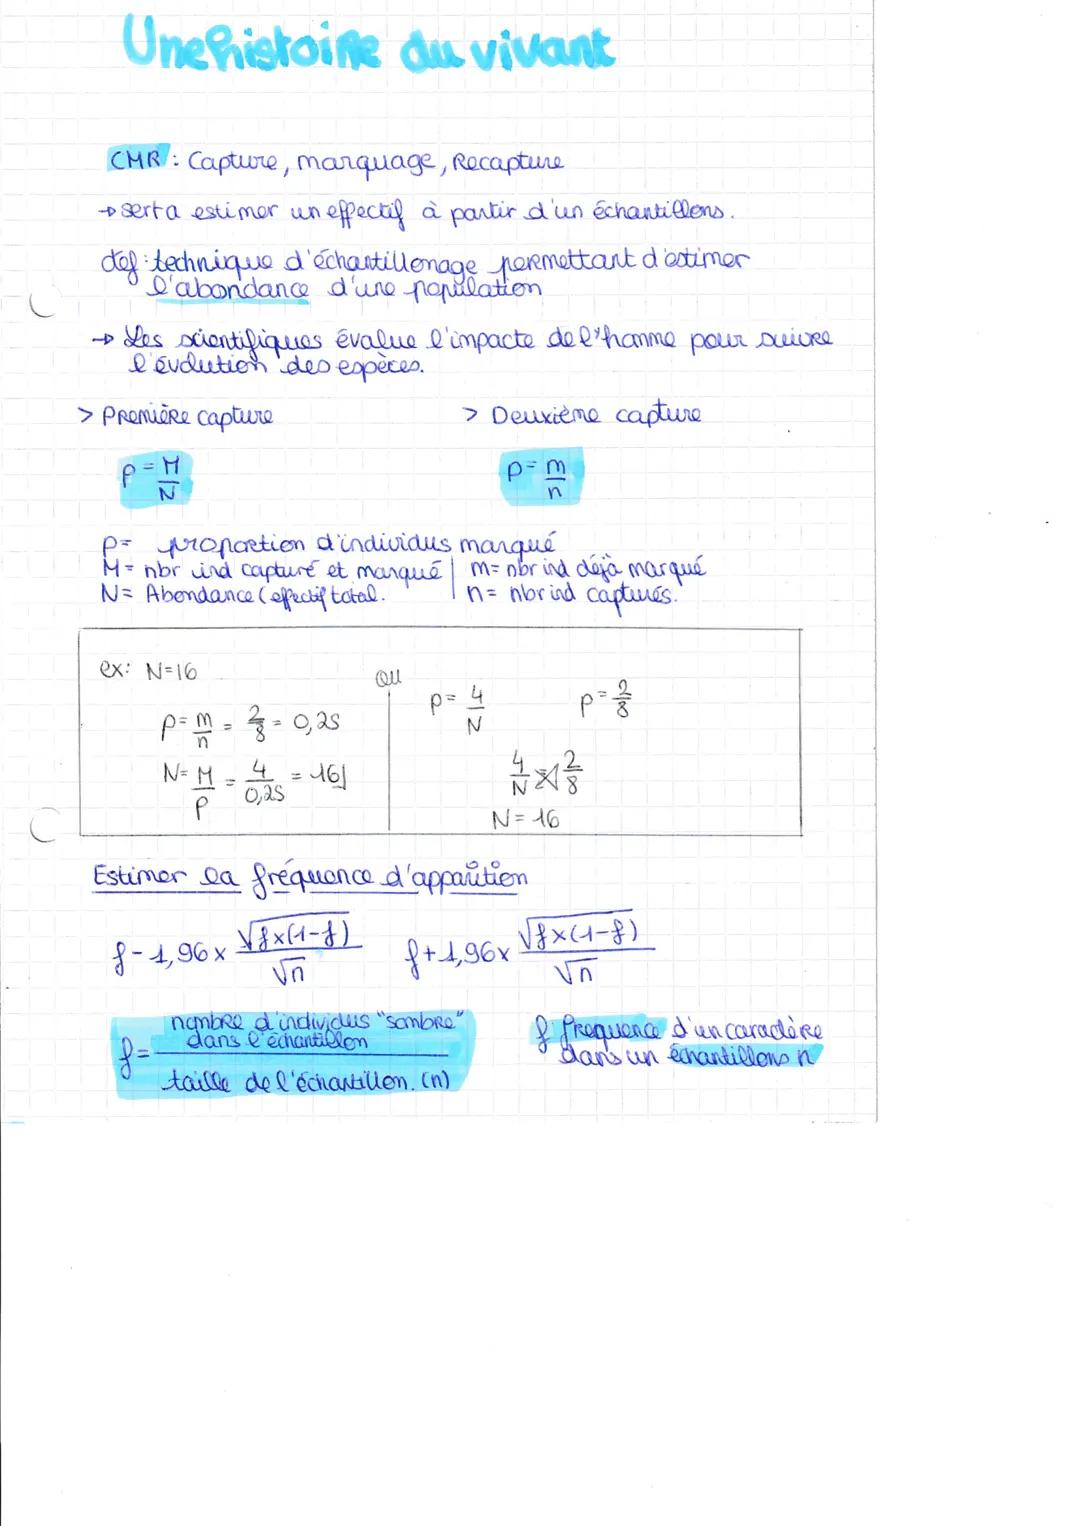 Une histoire du vivant
CMR : Capture, marquage, Recapture
→ sert a estimer un effectif à partir d'un échantillons.
def : technique d'échantillonage permettant d'estimer
l'abondance d'une population
→ Les scientifiques évalue l'impacte de l'homme pour suivre
l'évolution des espèces.
> Première capture
> Deuxième capture
p = M/N
p = m/n
p = proportion d'individus marqué
M = nbr ind capturé et marqué | m = nbr ind déjà marqué
N = Abondance (effectif total. | n = nbr ind capturés.
ex : N=16
p = m/n = 2/8 = 0,25
N = M/p = 4/0,25 = 16
ou
p = 4/N p = 2/8
4/N = 2/8
N = 16
Estimer la fréquence d'apparition
f - 1,96 x √f x (1-f) / √n f + 1,96 x √f x (1-f) / √n
f = nombre d'individus "sombre" dans l'échantillon / taille de l'échantillon. (n)
f frequence d'un caractère
dans un échantillons n